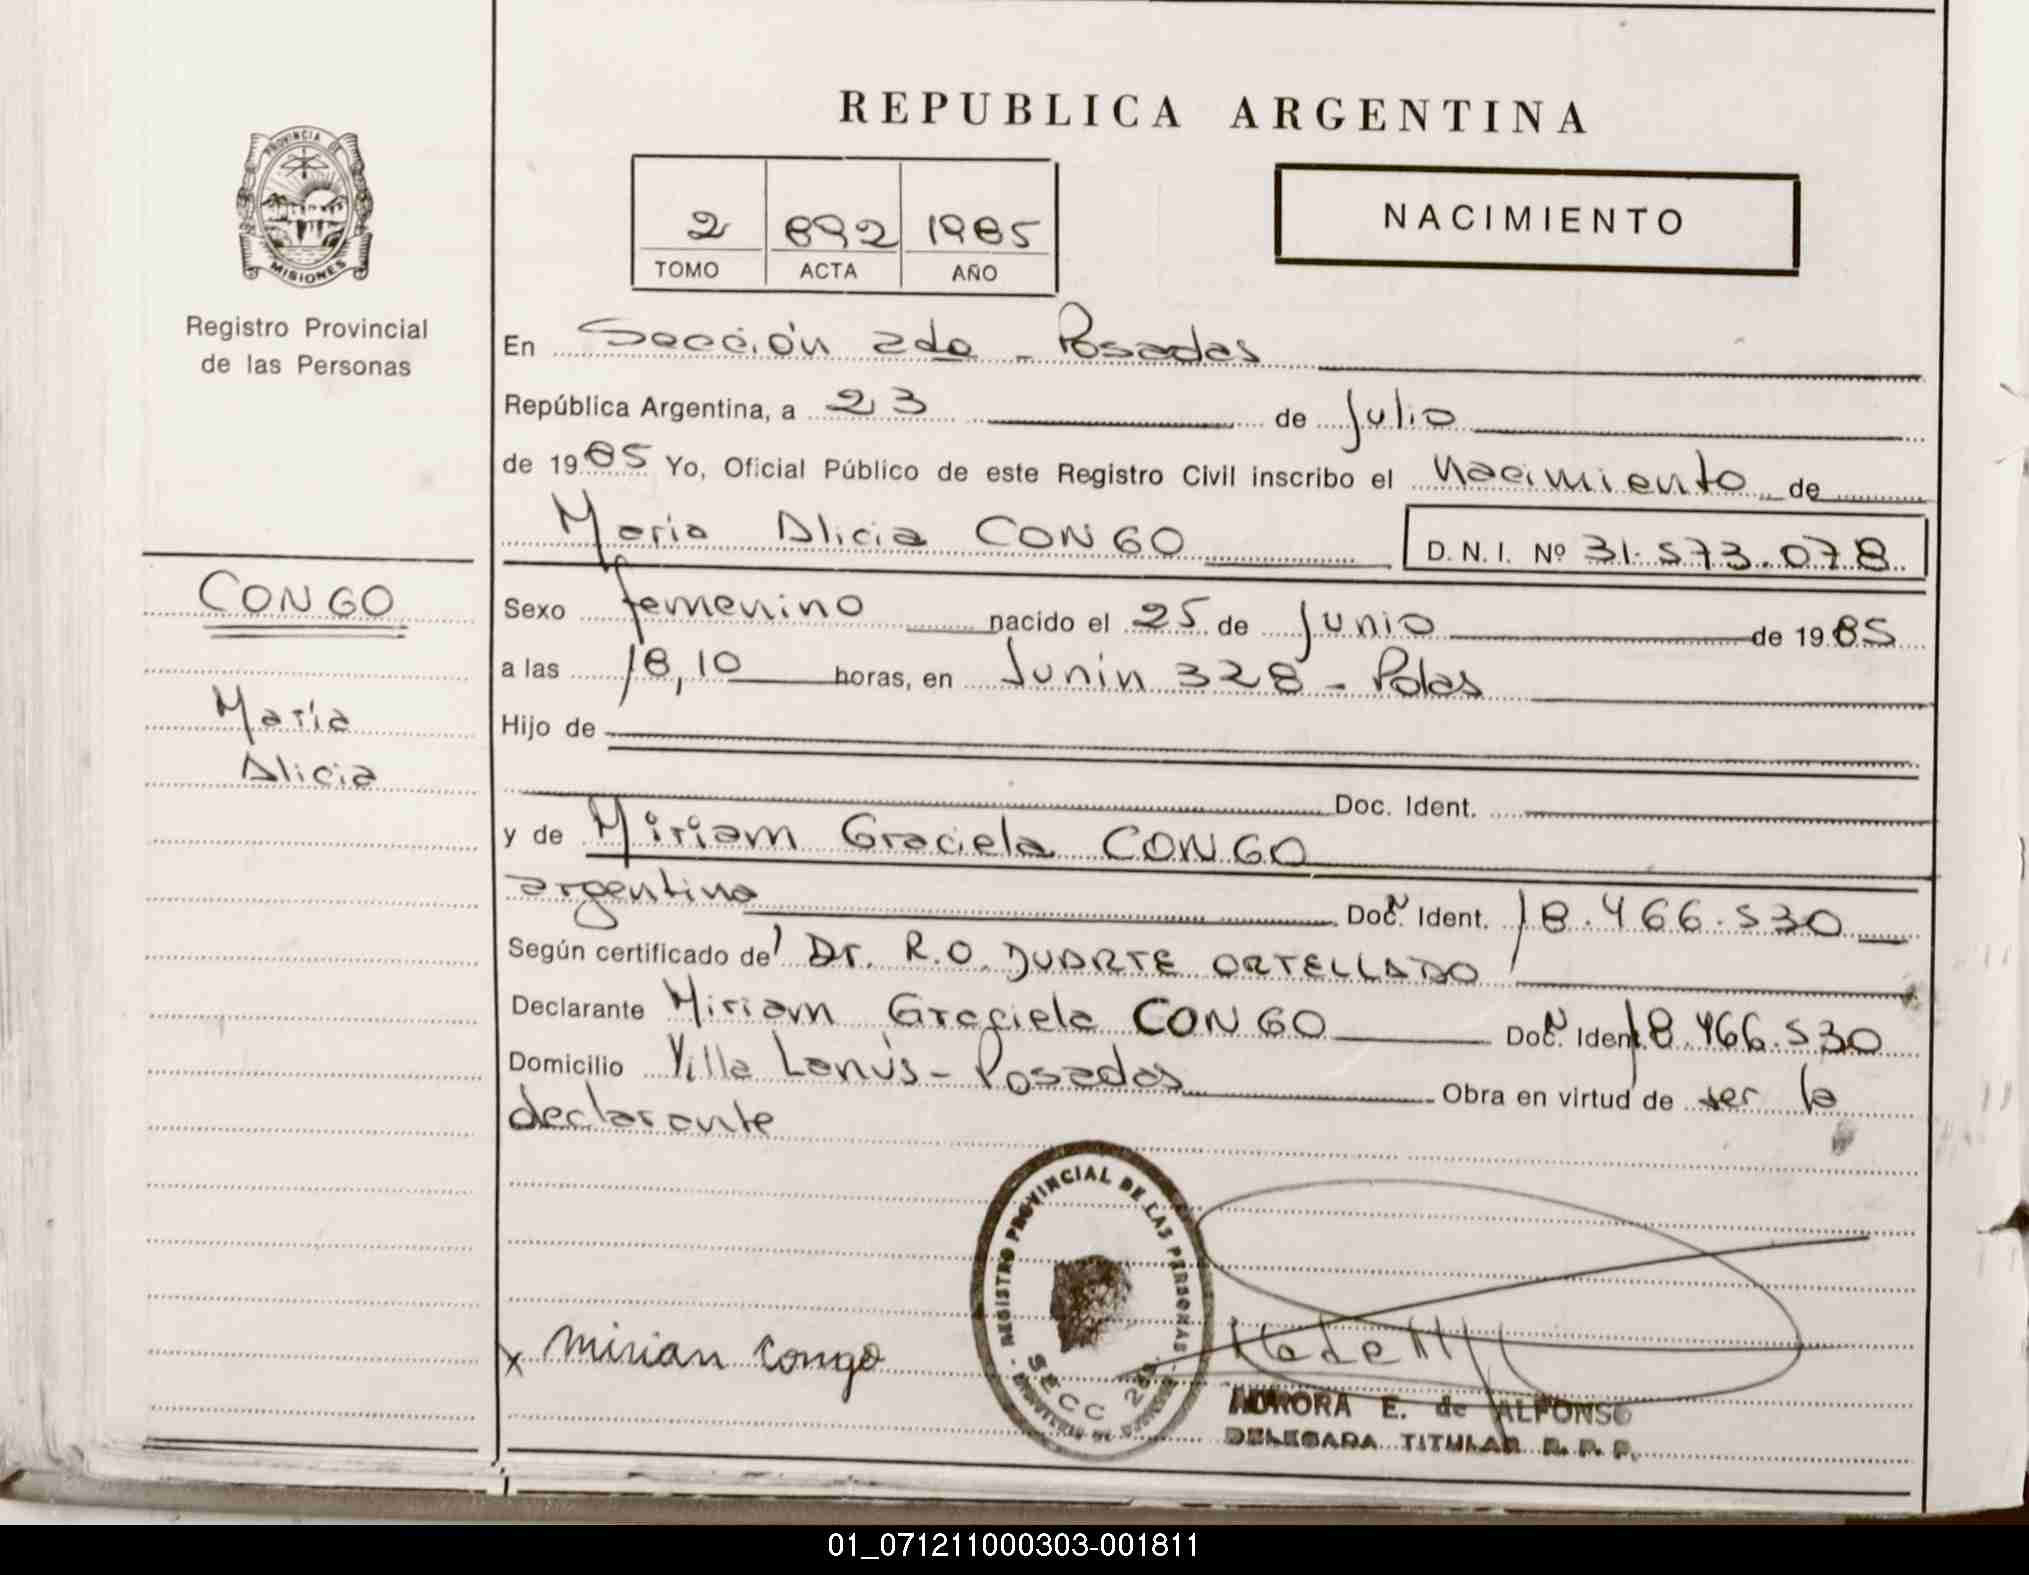 REPUBLICA ARGENTINA
PROVINCIA DE
MISIONES
Registro Provincial
de las Personas
2 892 1985
TOMO ACTA AÑO
NACIMIENTO
En Sección 2da - Posadas
República Argentina, a 23 de Julio
de 1985 Yo, Oficial Público de este Registro Civil inscribo el Nacimiento de
Maria Alicia CONGO D. N. I. Nº 31.573.078
CONGO
María
Alicia
Sexo femenino nacido el 25 de Junio de 1985
a las 18,10 horas, en Junin 328 - Pdas
Hijo de
Doc. Ident.
y de Miriam Graciela CONGO
argentina Doc. Ident. 18.466.530
Según certificado de Dr. R.O. DUARTE ORTELLADO
Declarante Miriam Graciela CONGO Doc. Ident. 18.466.530
Domicilio Villa Lanús - Posadas Obra en virtud de ser la
declarante
REGISTRO PROVINCIAL DE LAS PERSONAS
SECC 2da
x Mirian Congo
AURORA E. de ALFONSO
DELEGADA TITULAR R. P. P.
01_071211000303-001811